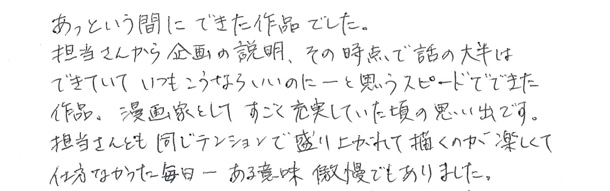 あっという間に できた作品でした。
担当さんから 企画の説明、その時点で話の大半は
できていて いつもこうならいいのにーと思うスピードでできた
作品。漫画家として すごく充実していた頃の思い出です。
担当さんとも 同じテンションで盛り上がれて 描くのが 楽しくて
仕方なかった毎日ー ある意味 傲慢でもありました。